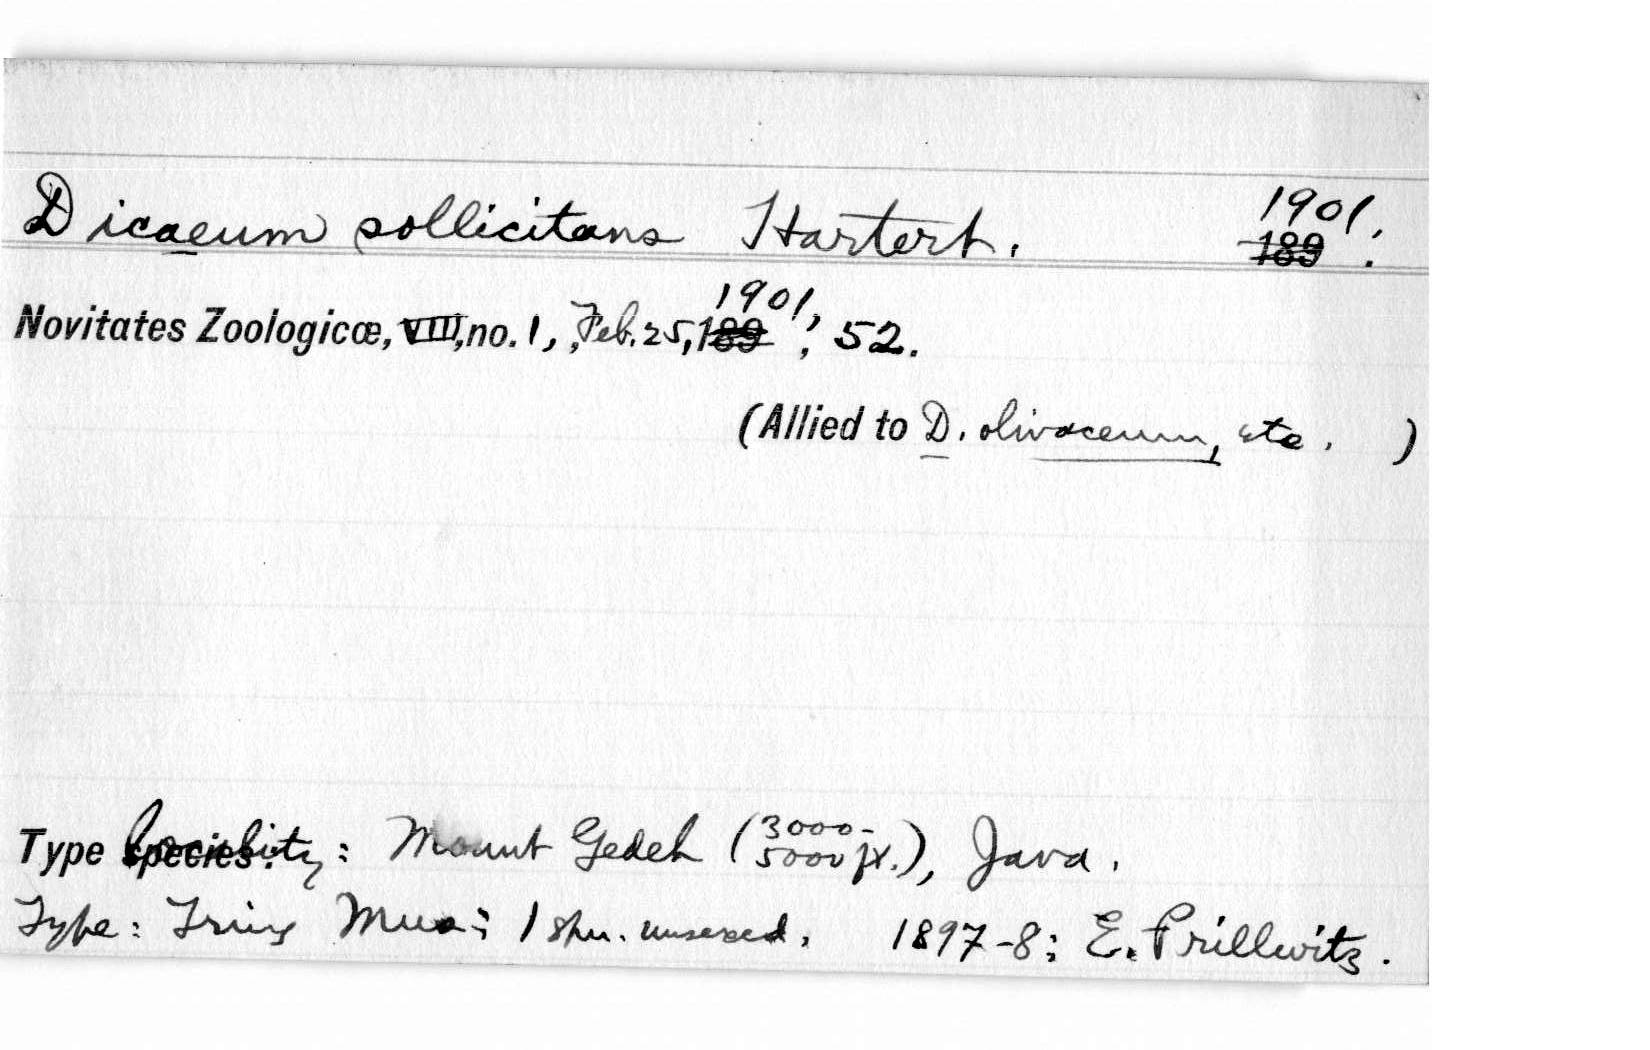 Dicaeum sollicitans Hartert. 1901.
189 .
1901,
Novitates Zoologicæ, VIII, no. 1, Feb. 25, 189 , 52.
(Allied to D. olivaceum, etc. )
Type species: locality: Mount Gedeh (3000-5000 ft.), Java.
Type: Tring Mus.; 1 spm. unsexed. 1897-8; E. Prillwitz.